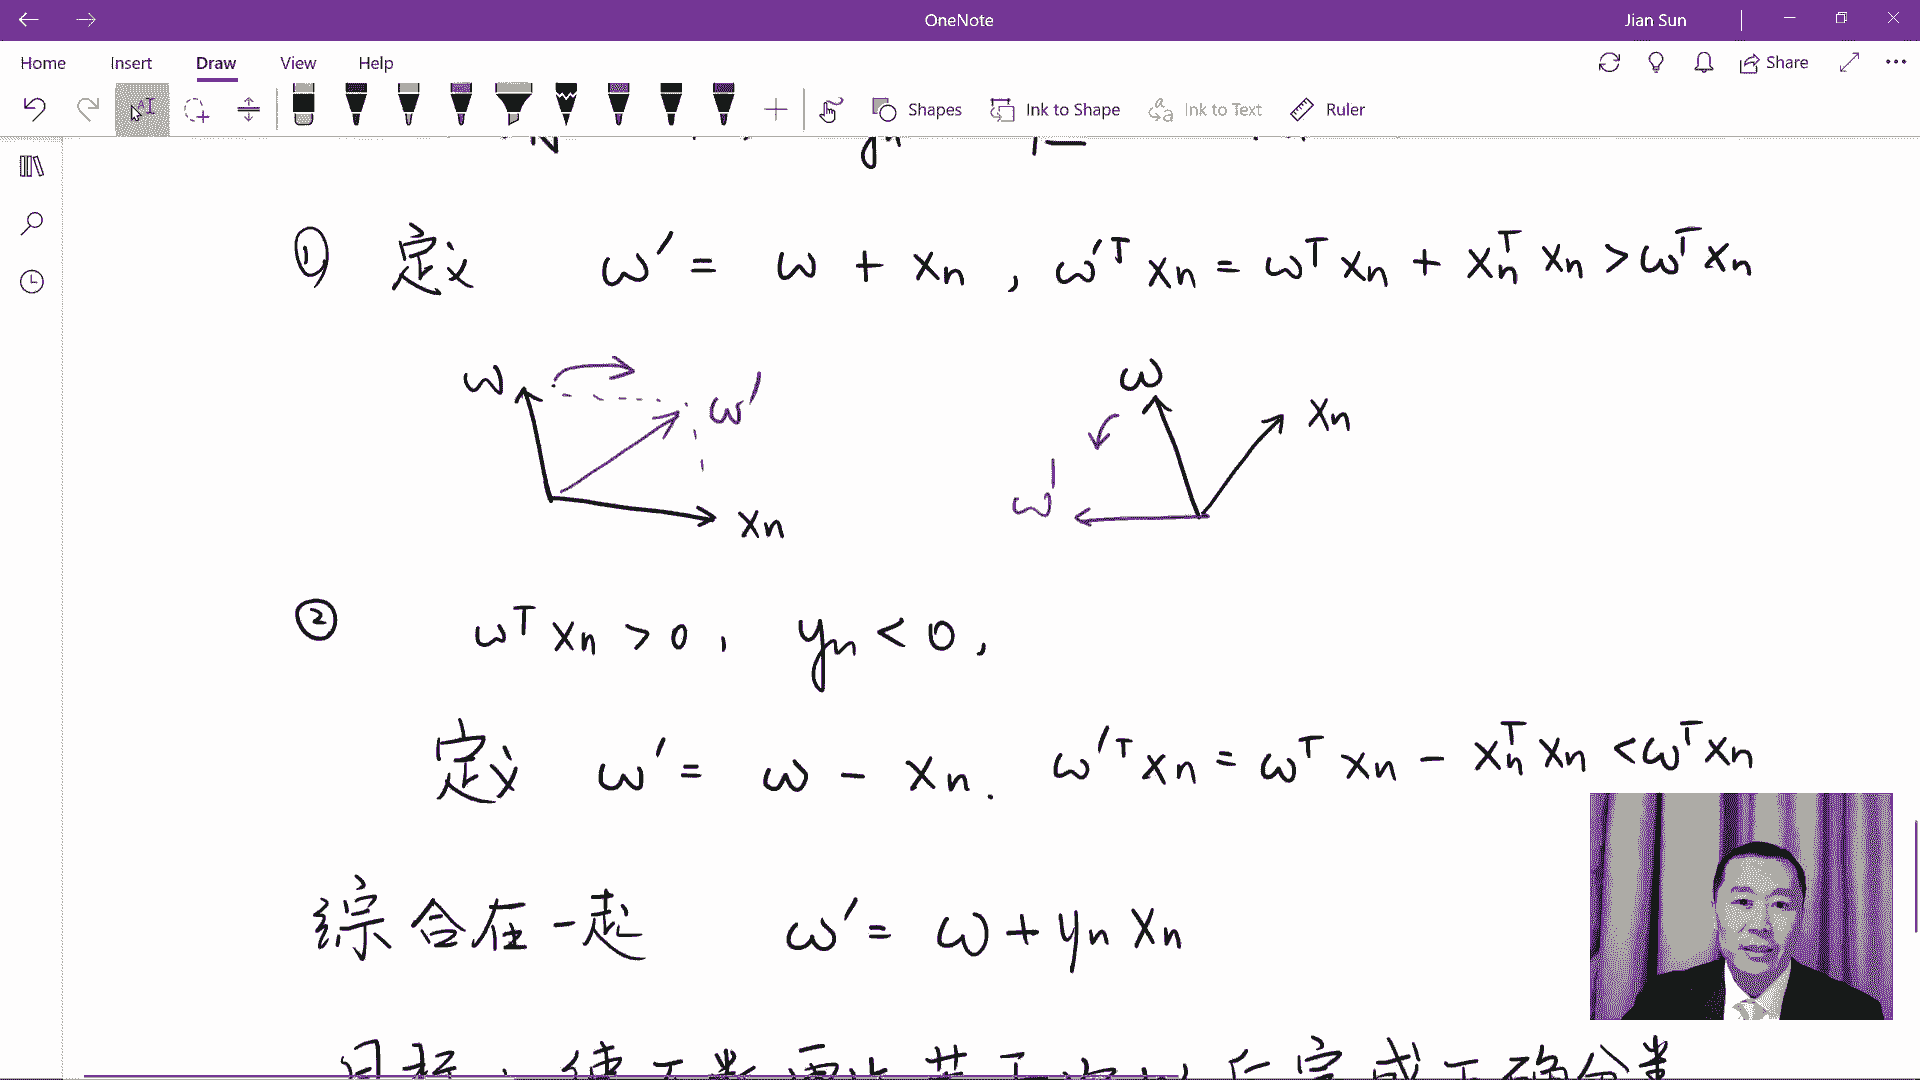 OneNote
Jian Sun
Home Insert Draw View Help
Share
Shapes Ink to Shape Ink to Text Ruler
① 定义 ω' = ω + xn , ω'ᵀ xn = ωᵀ xn + xnᵀ xn > ωᵀ xn
ω ω' xn
ω xn ω'
② ωᵀ xn > 0 , yn < 0 ,
定义 ω' = ω - xn . ω'ᵀ xn = ωᵀ xn - xnᵀ xn < ωᵀ xn
综合在一起 ω' = ω + yn xn